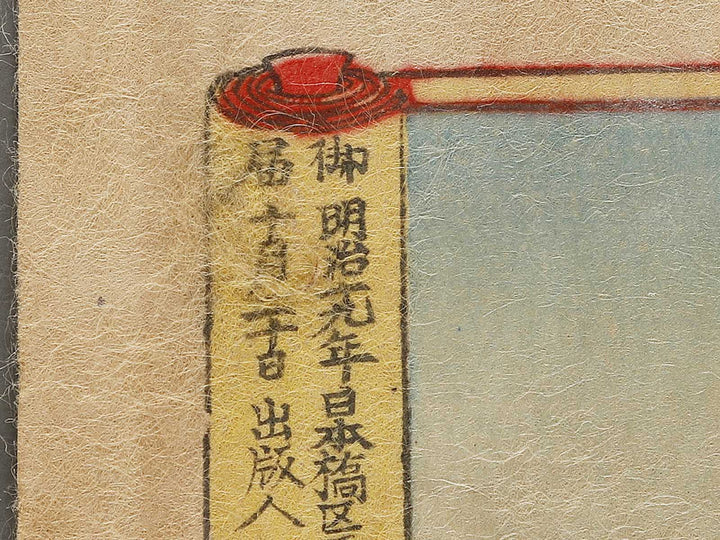 御 明治十九年 日本橋区
届 十月二十日 出版人